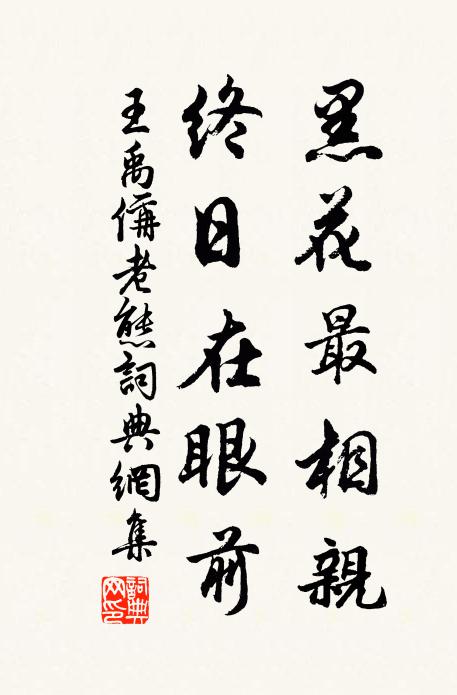 黑花最相親
終日在眼前
王禹偁老態詞典網集
詞典
网印